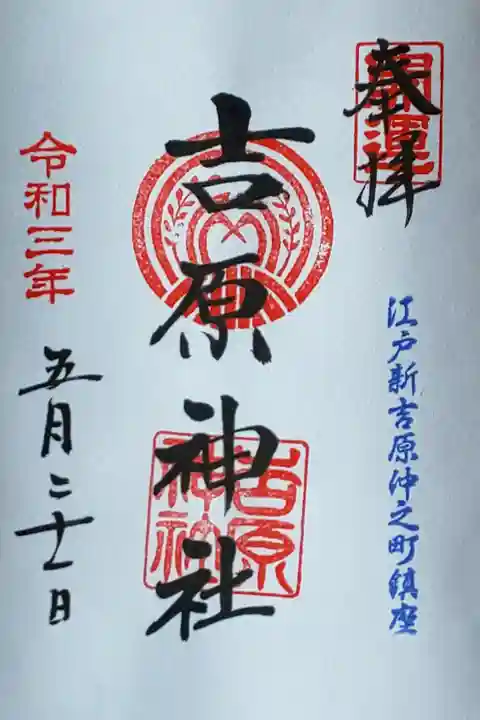 奉拝
開運
江戸新吉原仲之町鎮座
吉原神社
吉原神社
令和三年
五月二十一日